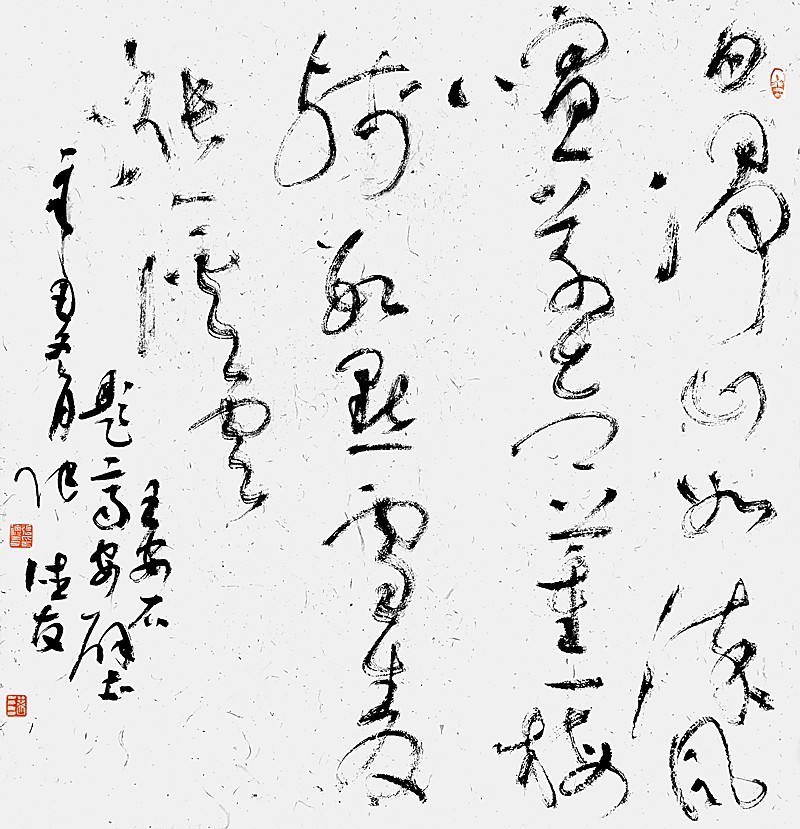 日淨山如染風
暄草欲薰梅
殘數點雪麥
漲一溪雲
王安石
題齊安壁
辛丑五月